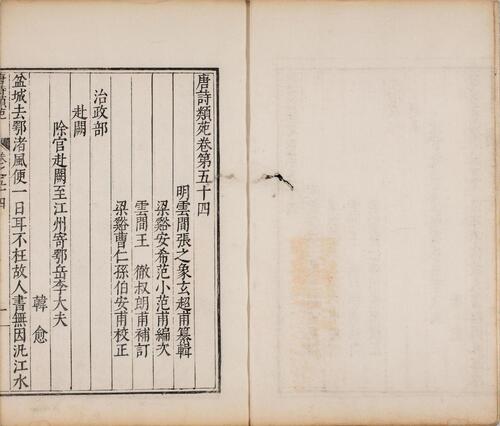 唐詩類苑卷第五十四
明雲間張之象玄超甫纂輯
梁谿安希范小范甫編次
雲間王徹叔朗甫補訂
梁谿曹仁孫伯安甫校正
治政部
赴闕
除官赴闕至江州寄鄂岳李大夫
韓愈
盆城去鄂渚風便一日耳不枉故人書無因汎江水
唐詩類苑 卷之五十四 一